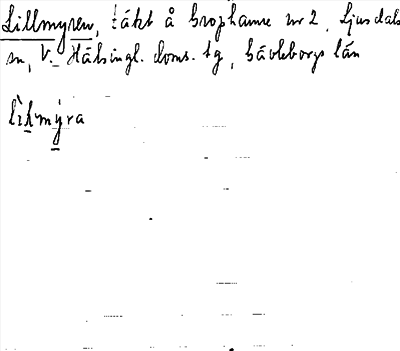 Lillmyren, täkt å Brophamre nr 2, Ljusdals
sn, V. Hälsingl. doms. tg, Gävleborgs län